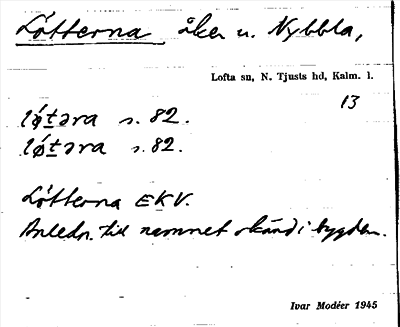 Lötterna åker u. Nybbla,
Lofta sn, N. Tjusts hd, Kalm. l.
13
lǿt̲əra s. 82.
lǿt̲əra s. 82.
Lötterna EKV.
Anledn. till namnet okänd i bygden.
Ivar Modéer 1945